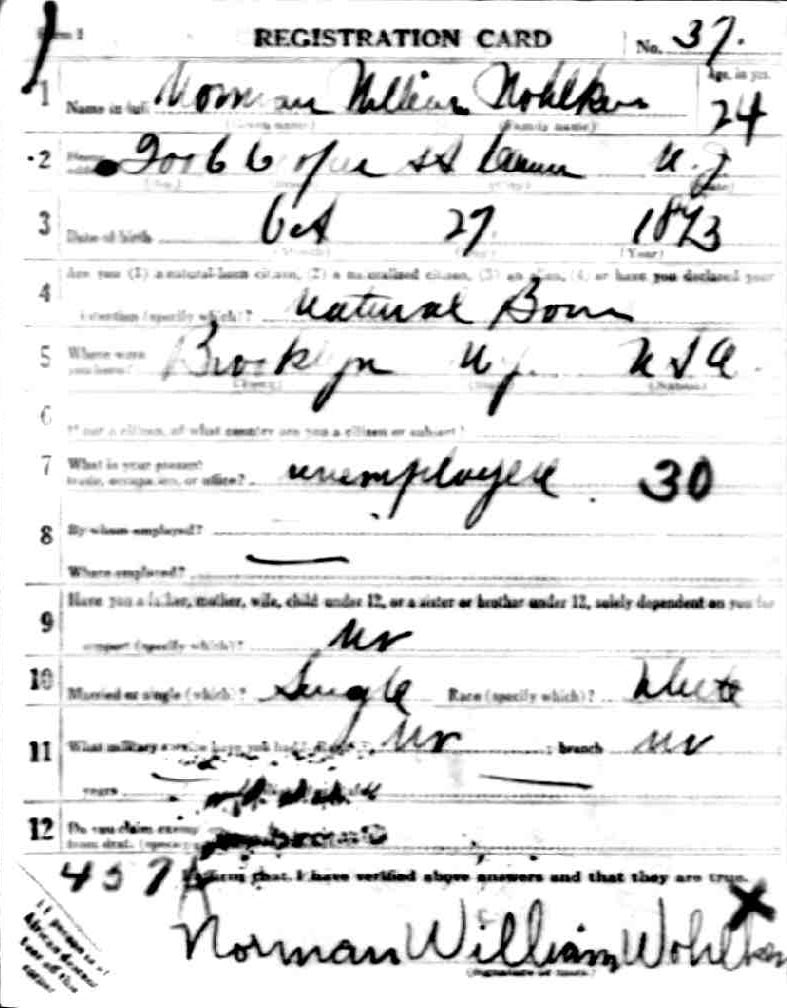 Form 1 REGISTRATION CARD No. 37.
1 Name in full Norman William Wohlken Age, in yrs. 24
(Given name) (Family name)
2 Home address 2006 Cooper St Camden N.J.
(No.) (City) (State)
3 Date of birth Oct 27 1893
(Month) (Day) (Year)
4 Are you (1) a natural-born citizen, (2) a naturalized citizen, (3) an alien, (4) or have you declared your
intention (specify which)? Natural Born
5 Where were you born? Brooklyn N.Y. U S A.
(Town) (State) (Nation)
6 If not a citizen, of what country are you a citizen or subject?
7 What is your present trade, occupation, or office? unemployed. 30
8 By whom employed?
Where employed?
9 Have you a father, mother, wife, child under 12, or a sister or brother under 12, solely dependent on you for
support (specify which)? No
10 Married or single (which)? Single Race (specify which)? White
11 What military service have you had? Rank No ; branch No
years
12 Do you claim exemption from draft (specify
457 A I affirm that I have verified above answers and that they are true. X
Norman William Wohlken
(Signature or mark)
If person is of
African descent,
tear off this
corner